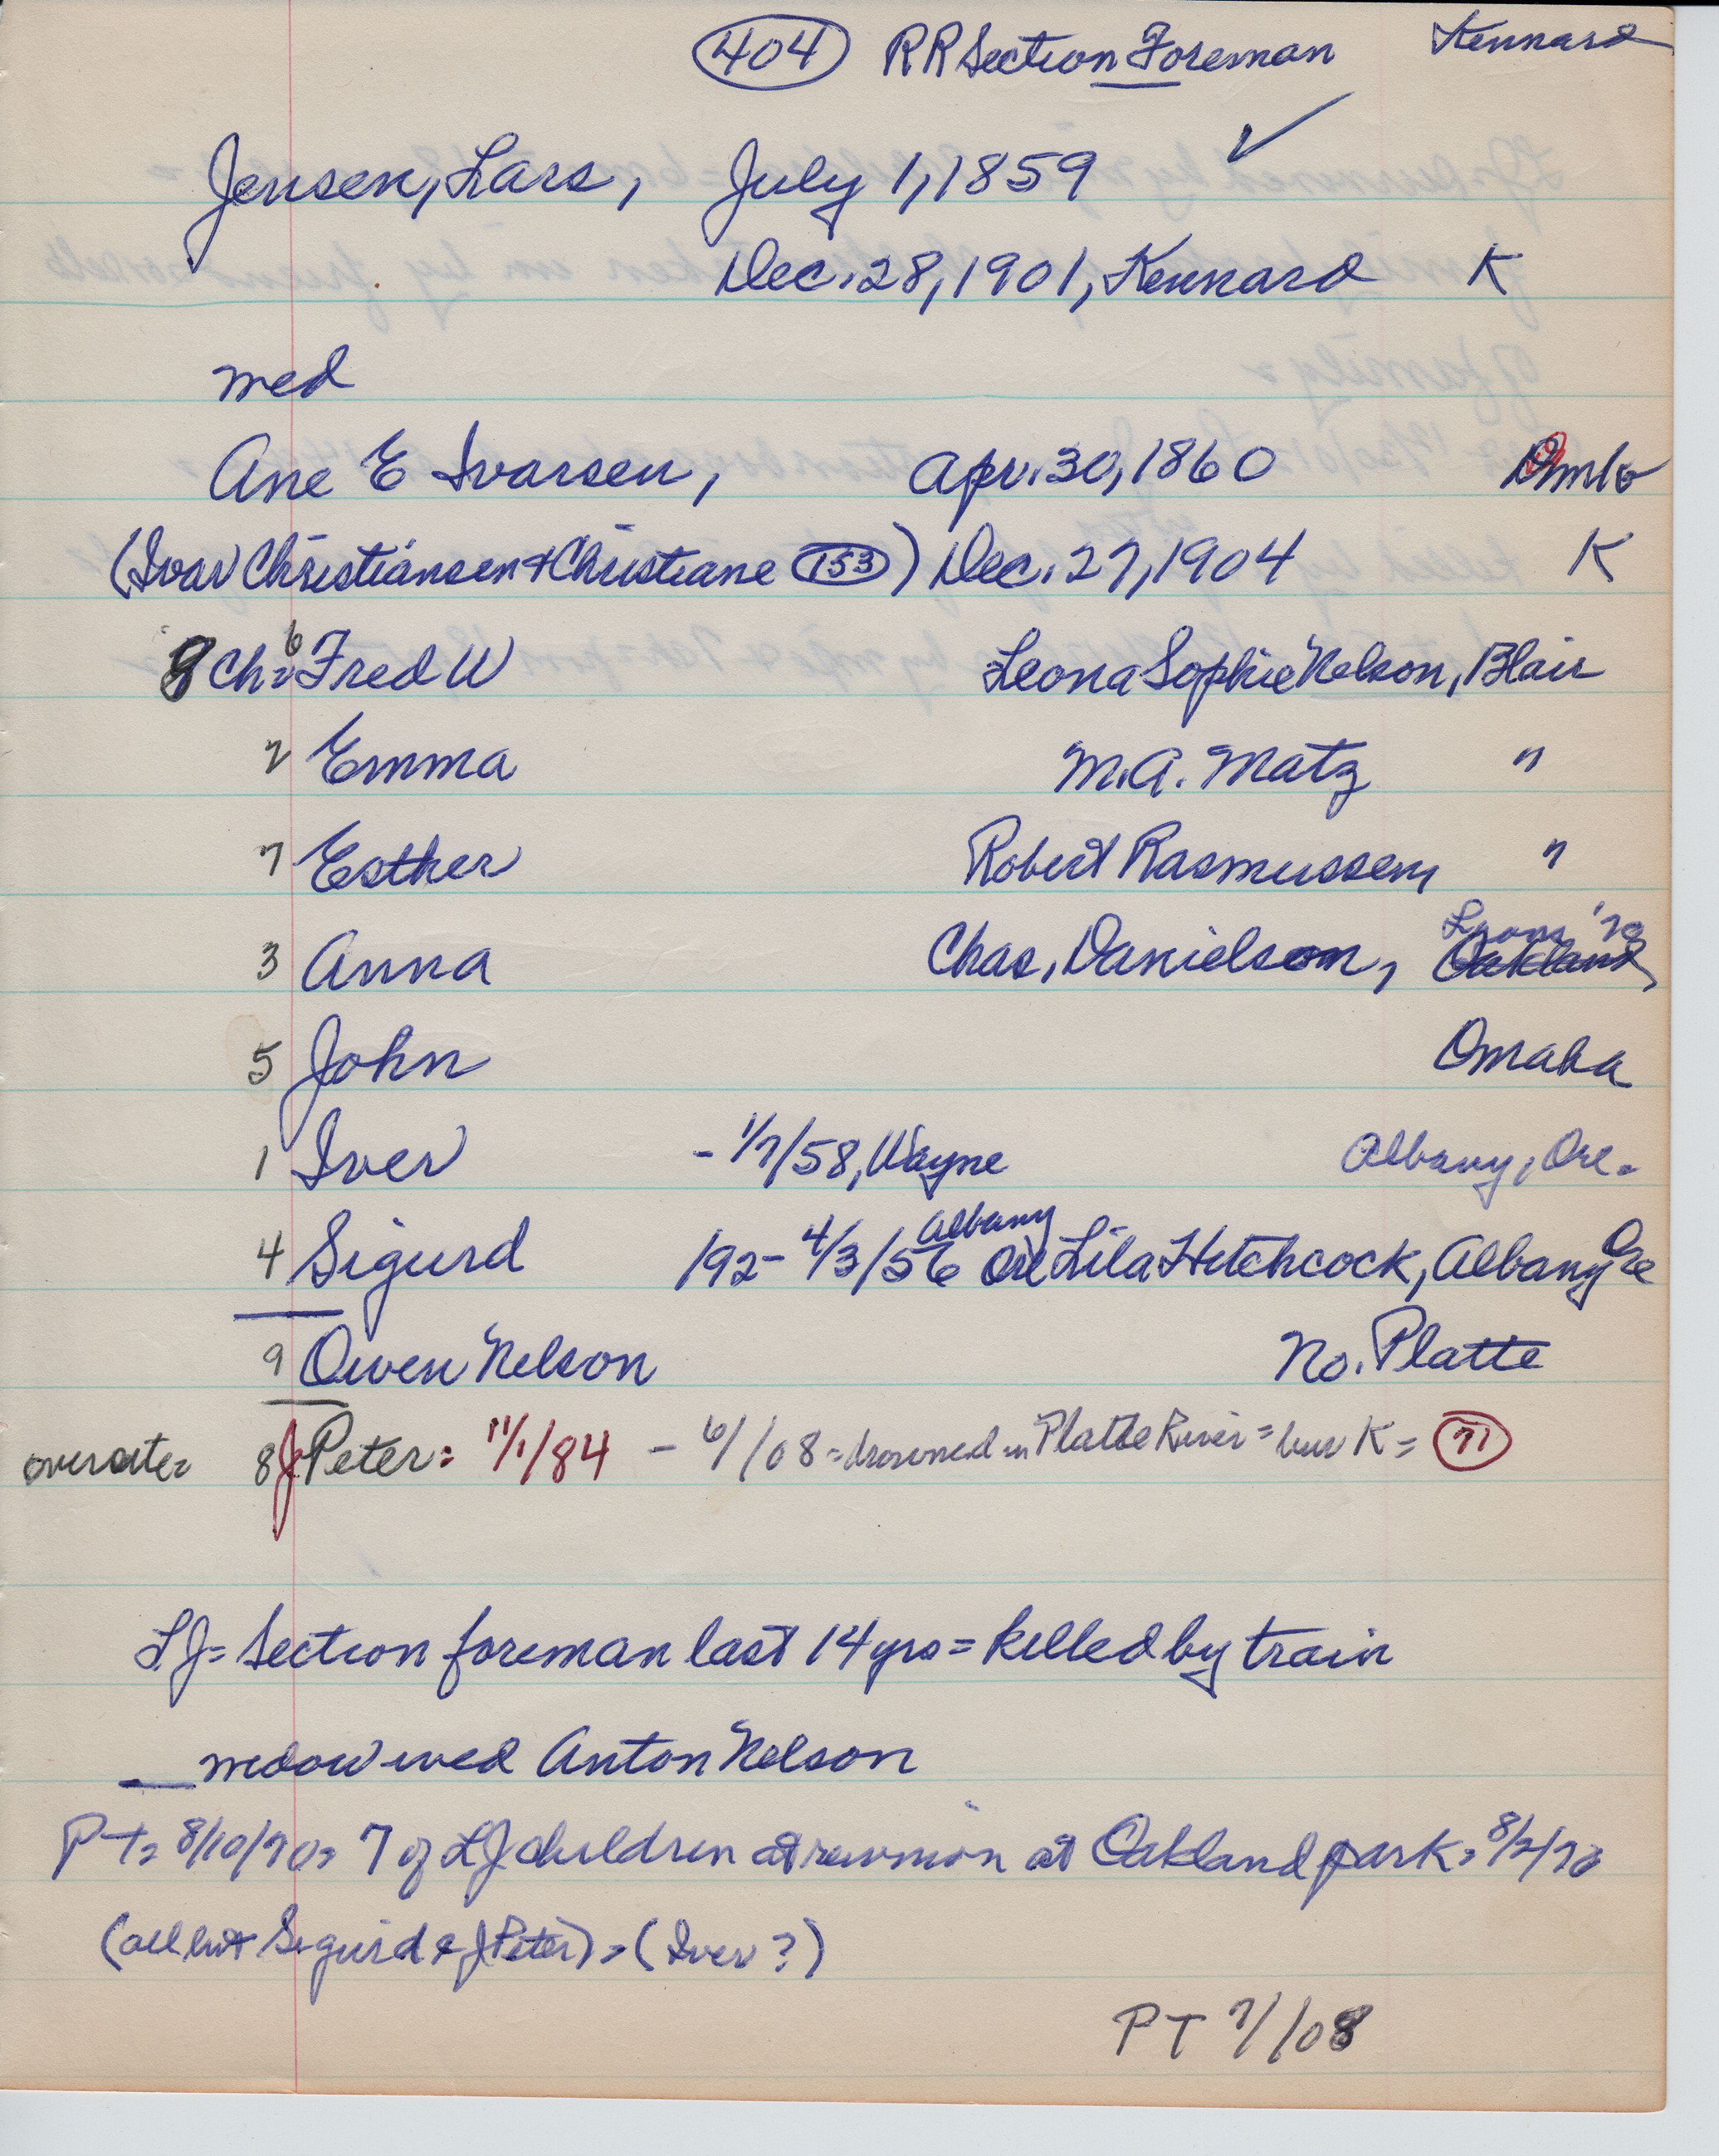 404 RR Section Foreman Kennard
✓
Jensen, Lars, July 1, 1859
Dec. 28, 1901, Kennard K
med
Ane E Ivarsen, Apr. 30, 1860
(Ivar Christiansen + Christiane 153) Dec. 27, 1904 K
8 Ch= 6 Fred W Leona Sophie Nelson, Blair
2 Emma M.A. Matz "
7 Esther Robert Rasmussen, "
3 Anna Chas. Danielson, Oakland Lyons '70
5 John Omaha
1 Iver - 1/7/58, Wayne Albany, Ore.
4 Sigurd 192- 4/3/56 Albany Ore Lila Hitchcock, Albany Ore
9 Owen Nelson No. Platte
over 8 J Peter= 11/1/84 - 6/ /08= drowned in Platte River= bur K= 71
LJ= Section foreman last 14 yrs= killed by train
widow wed Anton Nelson
PT= 8/10/70= 7 of LJ children at reunion at Oakland park= 8/2/70
(all but Sigurd & J Peter)= (Iver?)
PT 7/ /08